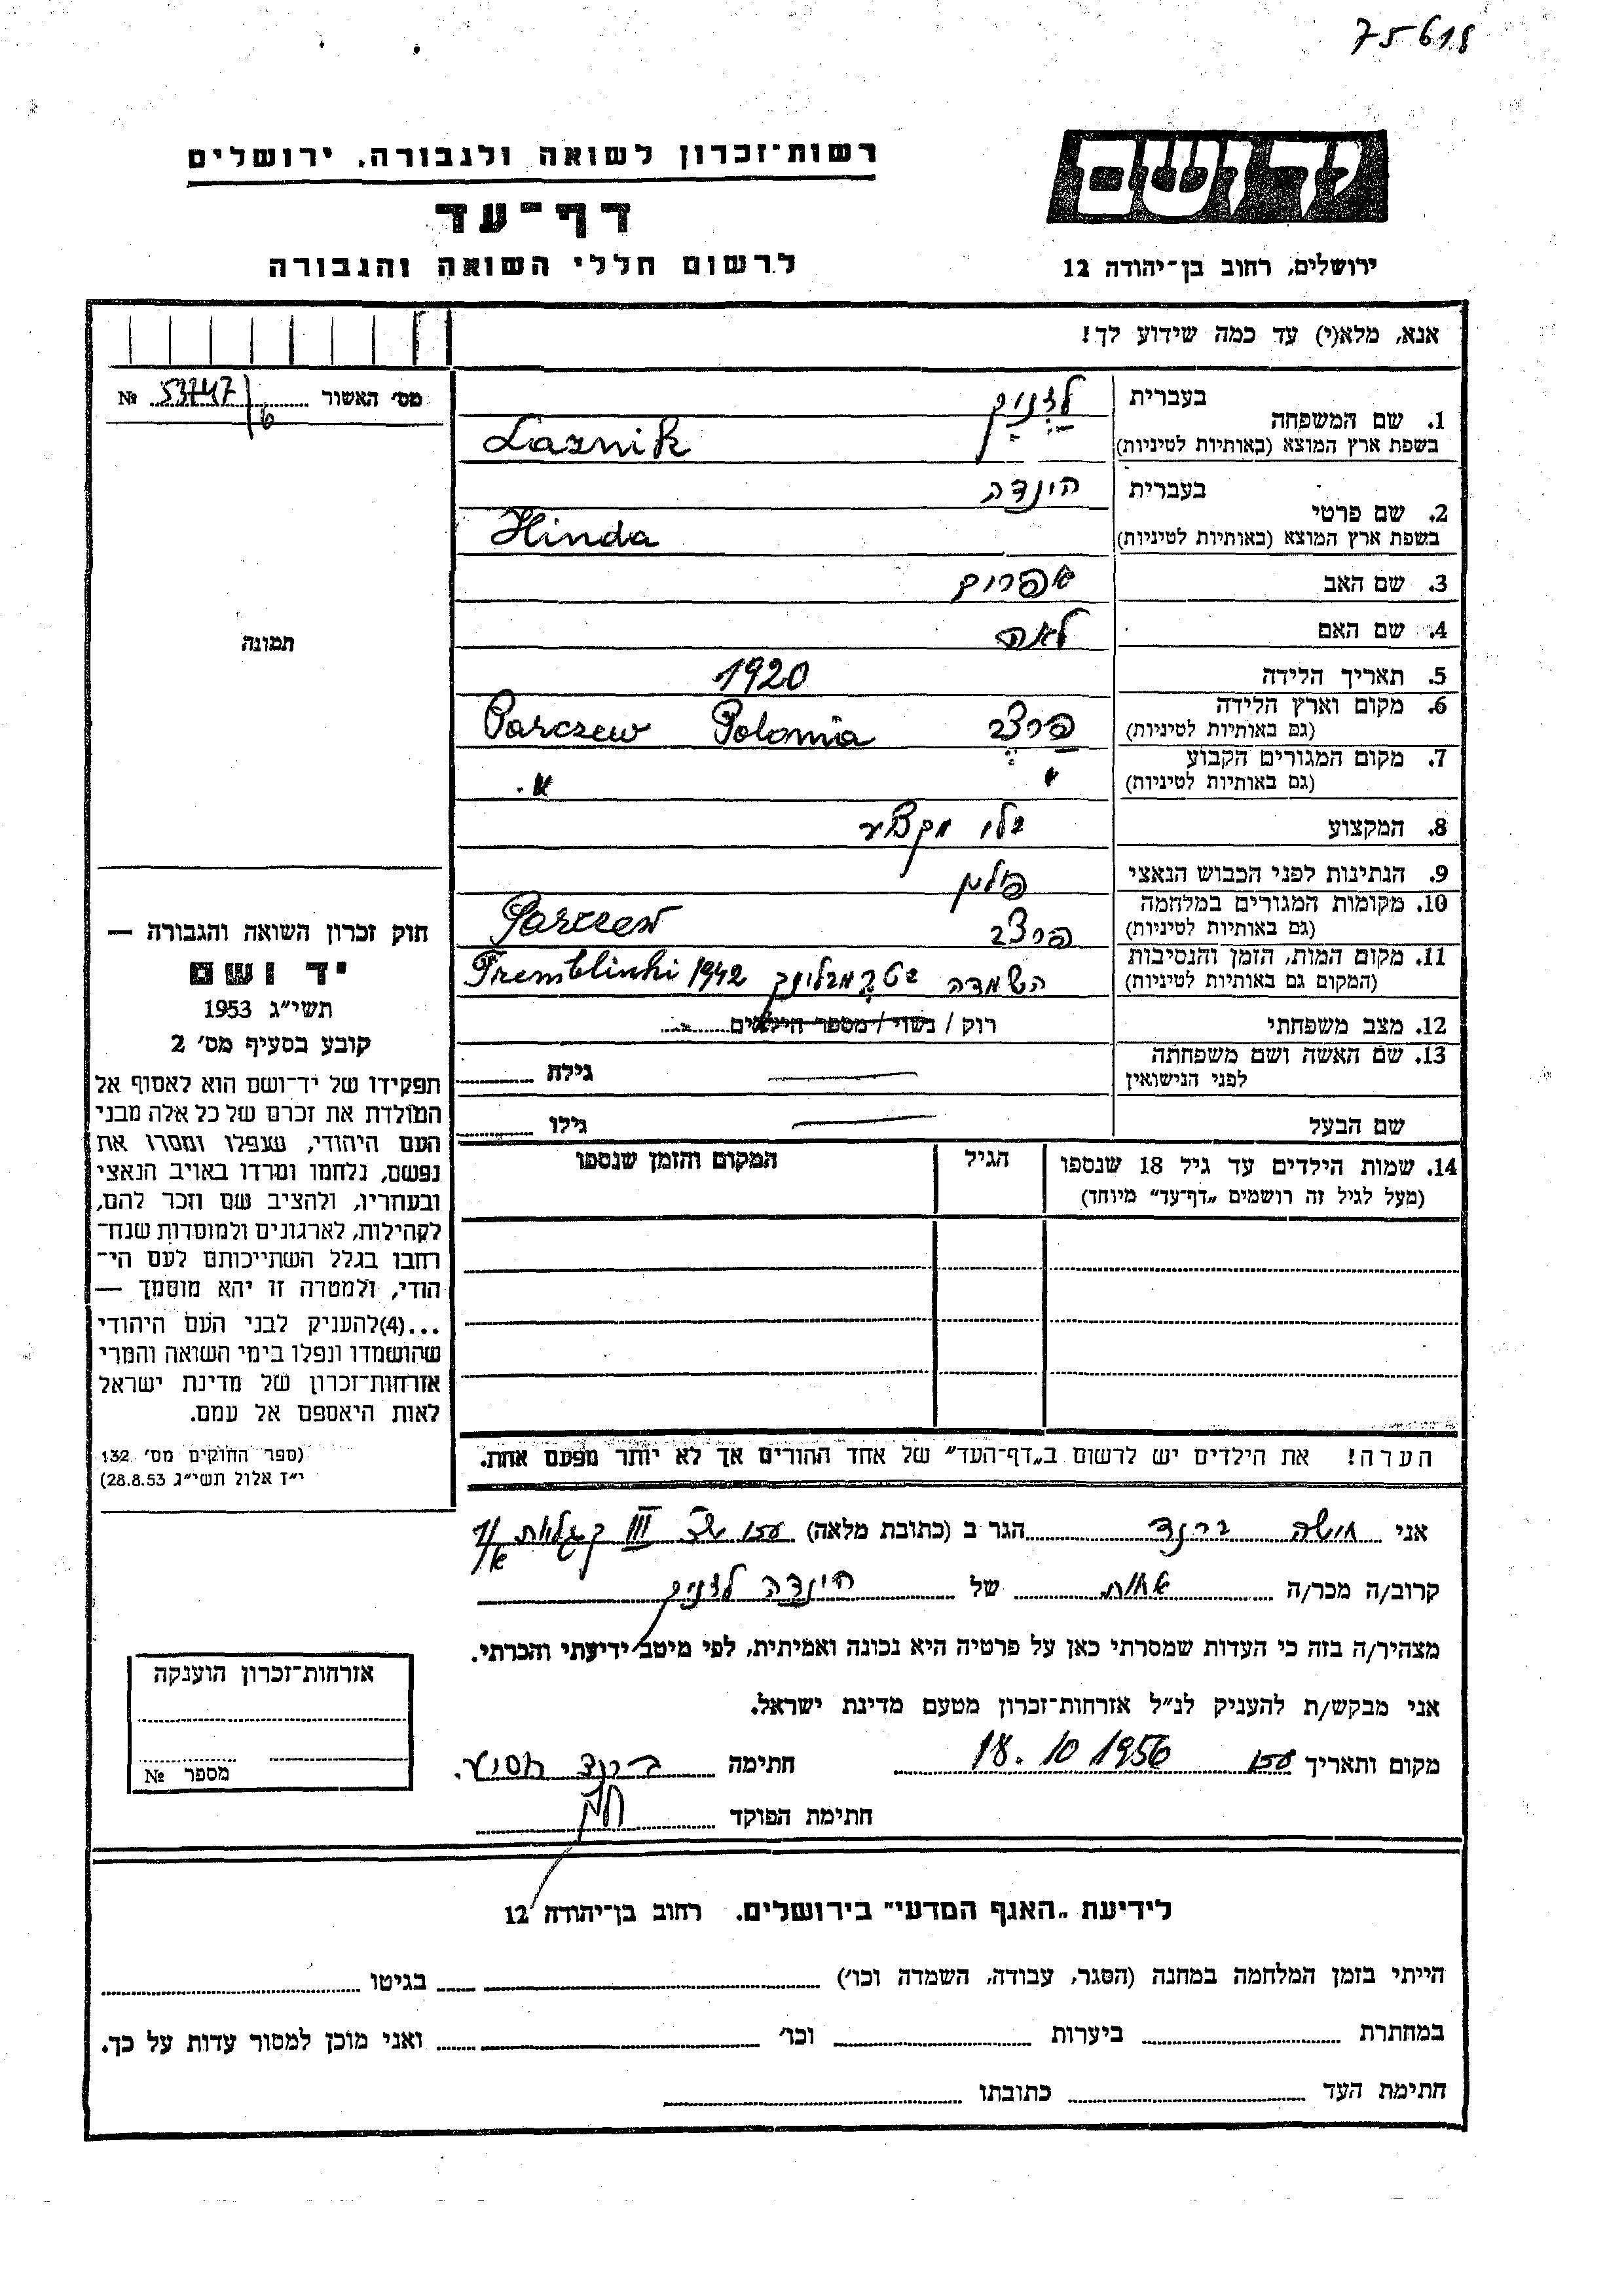 75618
רשות־זכרון לשואה ולגבורה, ירושלים
דף־עד
לרשום חללי השואה והגבורה
יד ושם
ירושלים, רחוב בן־יהודה 12
אנא, מלא(י) עד כמה שידוע לך!
מס' האשור 53747/6 №
תמונה
1. שם המשפחה בעברית לזניק
בשפת ארץ המוצא (באותיות לטיניות) Laznik
2. שם פרטי בעברית הינדה
בשפת ארץ המוצא (באותיות לטיניות) Hinda
3. שם האב אפרום
4. שם האם לאה
5. תאריך הלידה 1920
6. מקום וארץ הלידה פרצב Polonia Parczew
(גם באותיות לטיניות)
7. מקום המגורים הקבוע
(גם באותיות לטיניות)
8. המקצוע בלי מקצוע
9. הנתינות לפני הכבוש הנאצי פולין
10. מקומות המגורים במלחמה פרצב Parczew
(גם באותיות לטיניות)
11. מקום המות, הזמן והנסיבות השמדה Tremblinki 1942
(המקום גם באותיות לטיניות)
12. מצב משפחתי רוק / נשוי / מספר הילדים
13. שם האשה ושם משפחתה גילה
לפני הנישואין
שם הבעל גילו
14. שמות הילדים עד גיל 18 שנספו הגיל המקום והזמן שנספו
(מעל לגיל זה רושמים „דף־עד״ מיוחד)
הערה! את הילדים יש לרשום ב„דף־העד״ של אחד ההורים אך לא יותר מפעם אחת.
חוק זכרון השואה והגבורה —
יד ושם
תשי״ג 1953
קובע בסעיף מס' 2
תפקידו של יד־ושם הוא לאסוף אל
המולדת את זכרם של כל אלה מבני
העם היהודי, שנפלו ומסרו את
נפשם, נלחמו ומרדו באויב הנאצי
ובעוזריו, ולהציב שם וזכר להם,
לקהילות, לארגונים ולמוסדות שנח־
רבו בגלל השתייכותם לעם הי־
הודי, ולמטרה זו יהא מוסמך —
...(4)להעניק לבני העם היהודי
שהושמדו ונפלו בימי השואה והמרי
אזרחות־זכרון של מדינת ישראל
לאות היאספם אל עמם.
(ספר החוקים מס' 132
י״ז אלול תשי״ג 28.8.53)
אני ברנד הגר ב (כתובת מלאה) III
קרוב/ה מכר/ה אחות של הינדה לזניק
מצהיר/ה בזה כי העדות שמסרתי כאן על פרטיה היא נכונה ואמיתית, לפי מיטב ידיעתי והכרתי.
אני מבקש/ת להעניק לנ״ל אזרחות־זכרון מטעם מדינת ישראל.
מקום ותאריך 18. 10 1956 חתימה ברנד
חתימת הפוקד
אזרחות־זכרון הוענקה
מספר №
לידיעת „האגף המדעי״ בירושלים. רחוב בן־יהודה 12
הייתי בזמן המלחמה במחנה (הסגר, עבודה, השמדה וכו') בגיטו
במחתרת ביערות וכו' ואני מוכן למסור עדות על כך.
חתימת העד כתובתו